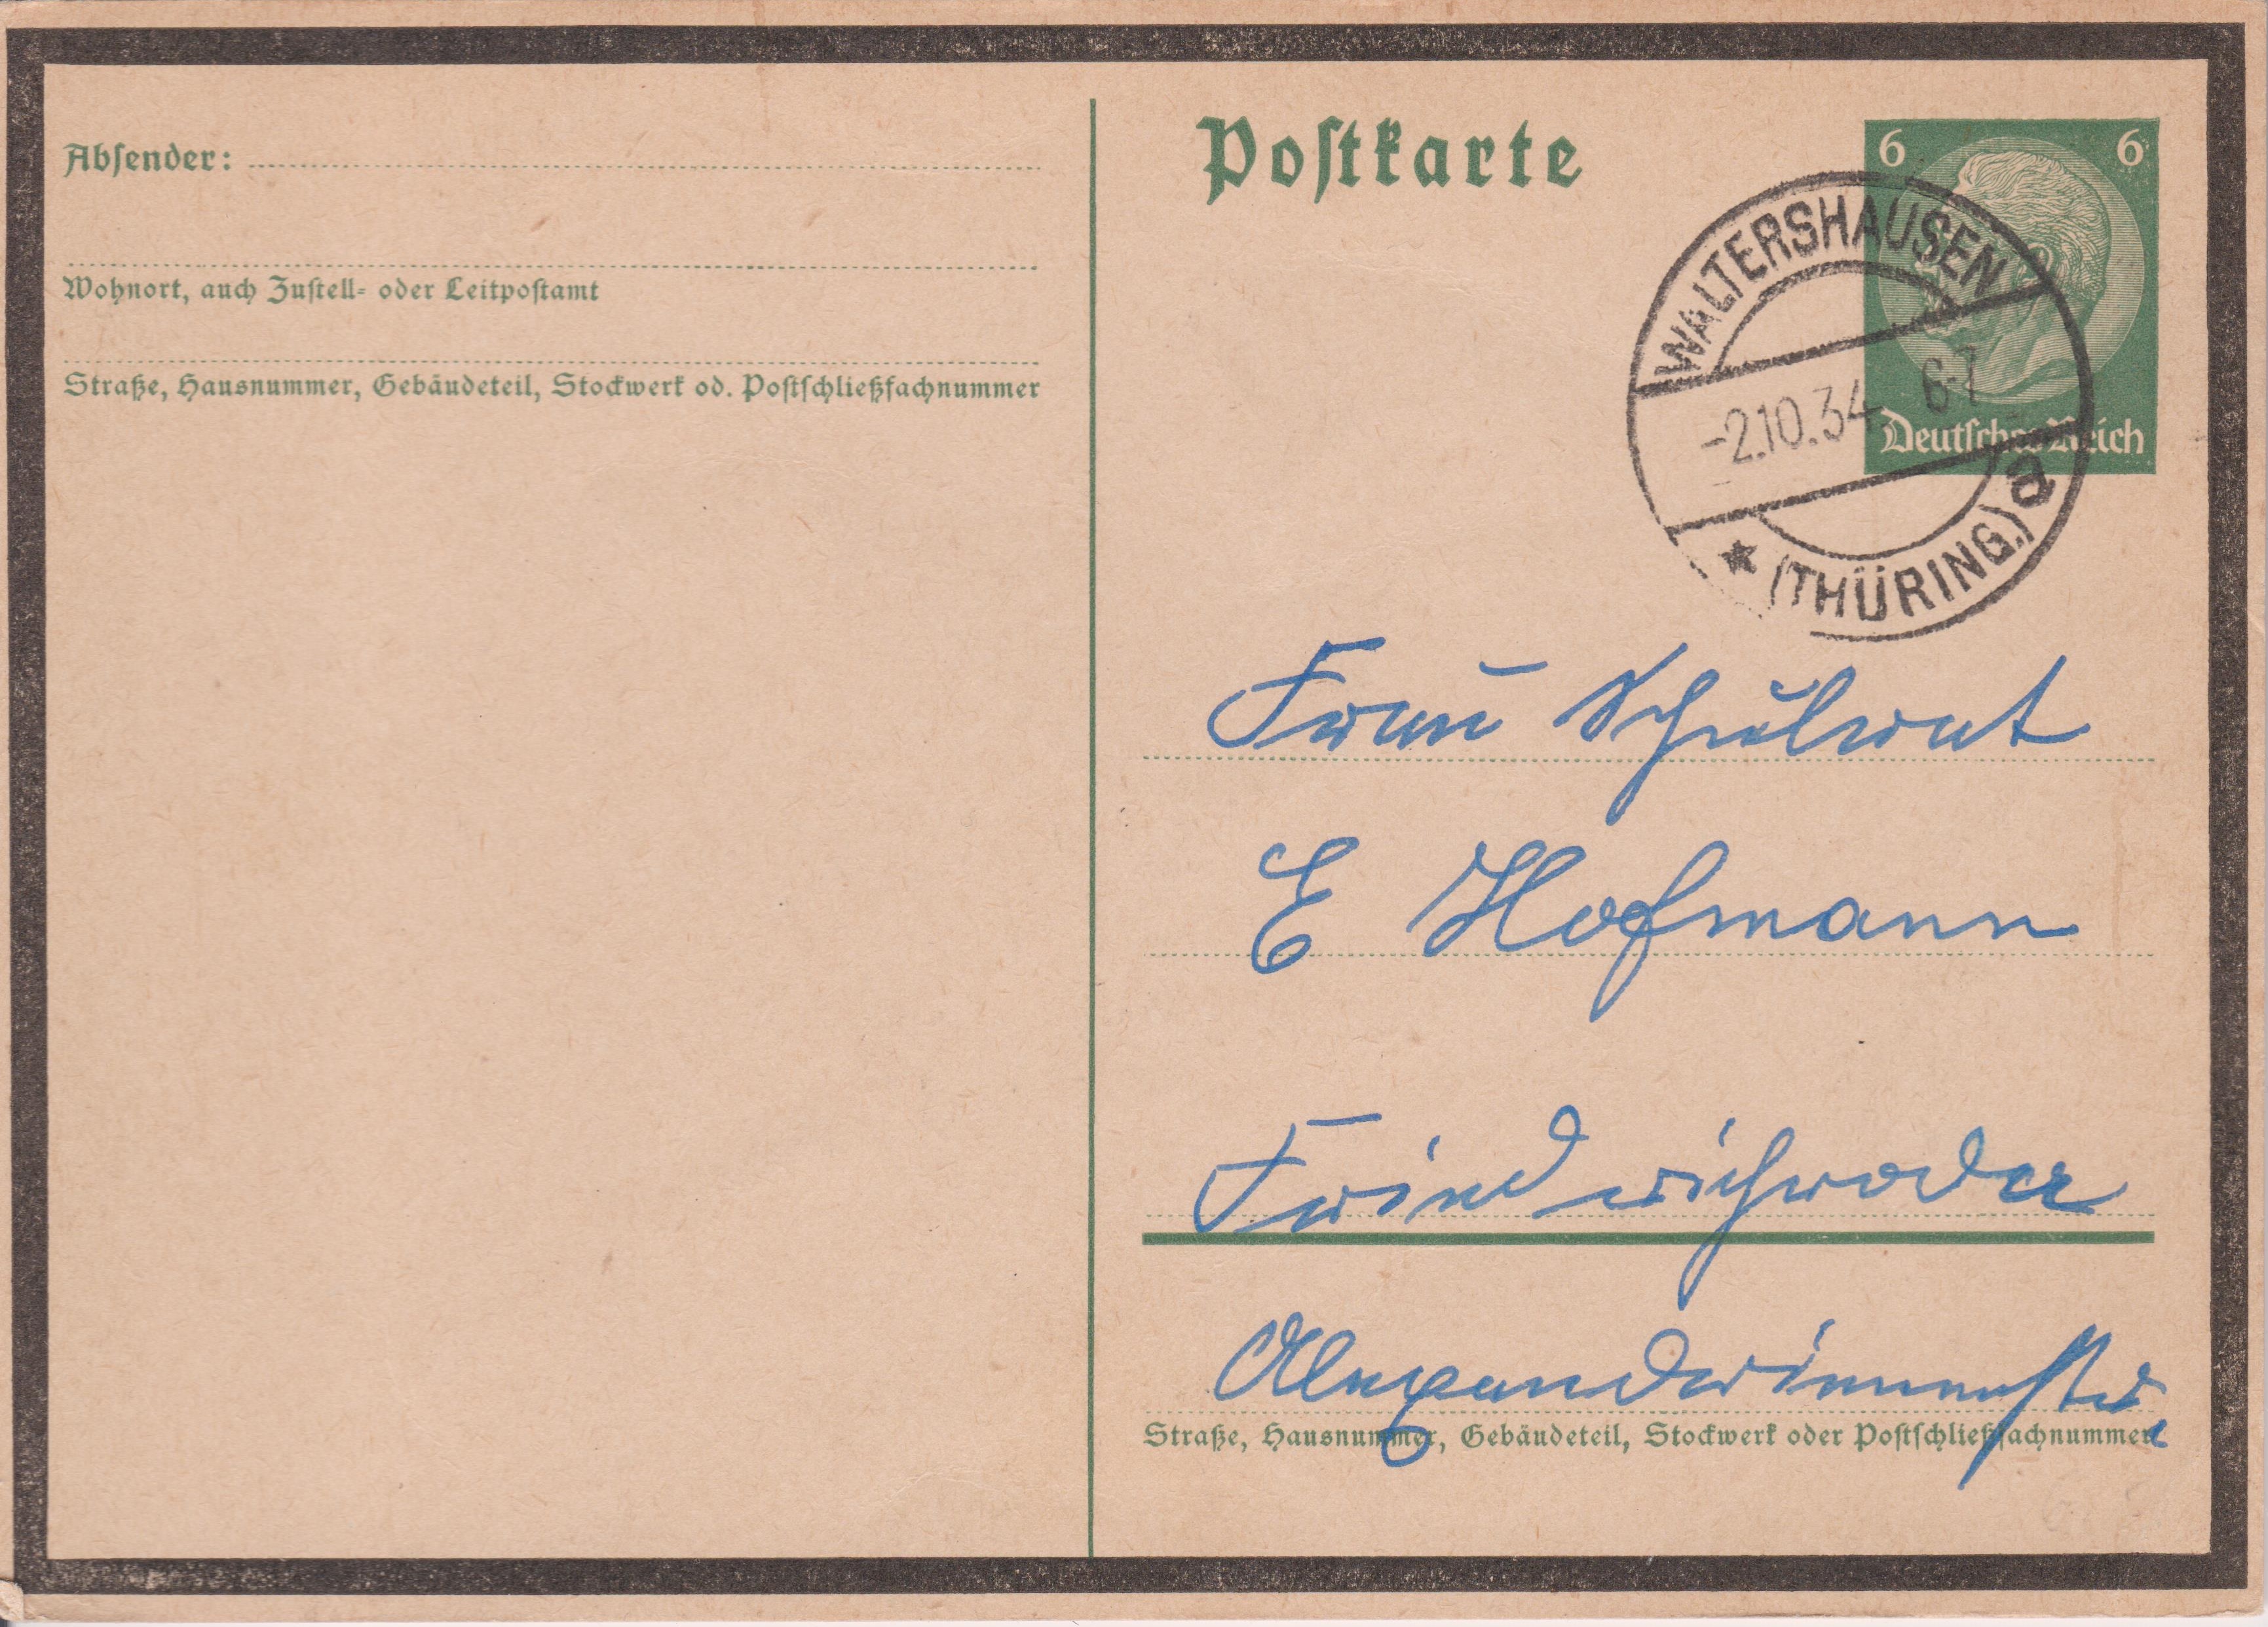 Absender:
Wohnort, auch Zustell- oder Leitpostamt
Straße, Hausnummer, Gebäudeteil, Stockwerk od. Postschließfachnummer
Postkarte
6 6
Deutsches Reich
WALTERSHAUSEN
-2.10.34. 6-7
* (THÜRING.) a
Frau Schulrat
E Hofmann
Friedrichroda
Alexandrinenstr.
Straße, Hausnummer, Gebäudeteil, Stockwerk oder Postschließfachnummer